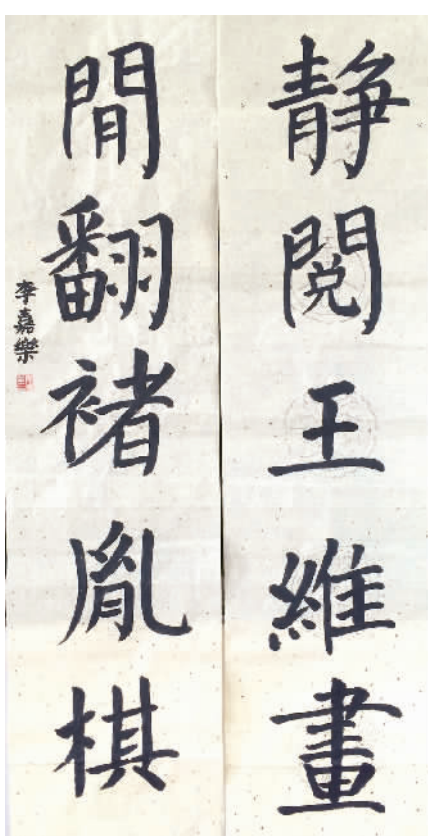 静閱王維畫
閒翻褚胤棋
李嘉樂